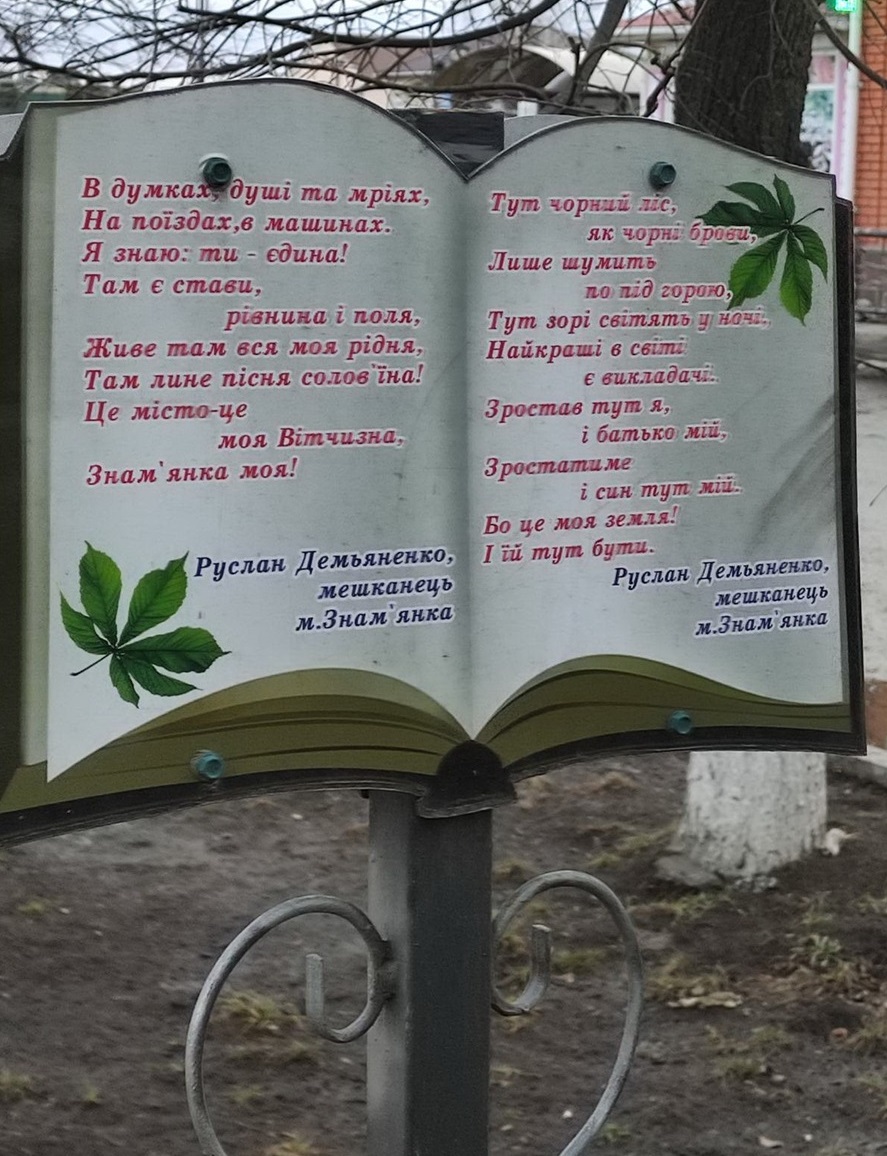 В думках, душі та мріях,
На поїздах,в машинах.
Я знаю: ти - єдина!
Там є стави,
рівнина і поля,
Живе там вся моя рідня,
Там лине пісня солов`їна!
Це місто-це
моя Вітчизна,
Знам`янка моя!
Руслан Демьяненко,
мешканець
м.Знам`янка
Тут чорний ліс,
як чорні брови,
Лише шумить
по під горою,
Тут зорі світять у ночі,
Найкраші в світі
є викладачі.
Зростав тут я,
і батько мій,
Зростатиме
і син тут мій.
Бо це моя земля!
І їй тут бути.
Руслан Демьяненко,
мешканець
м.Знам`янка